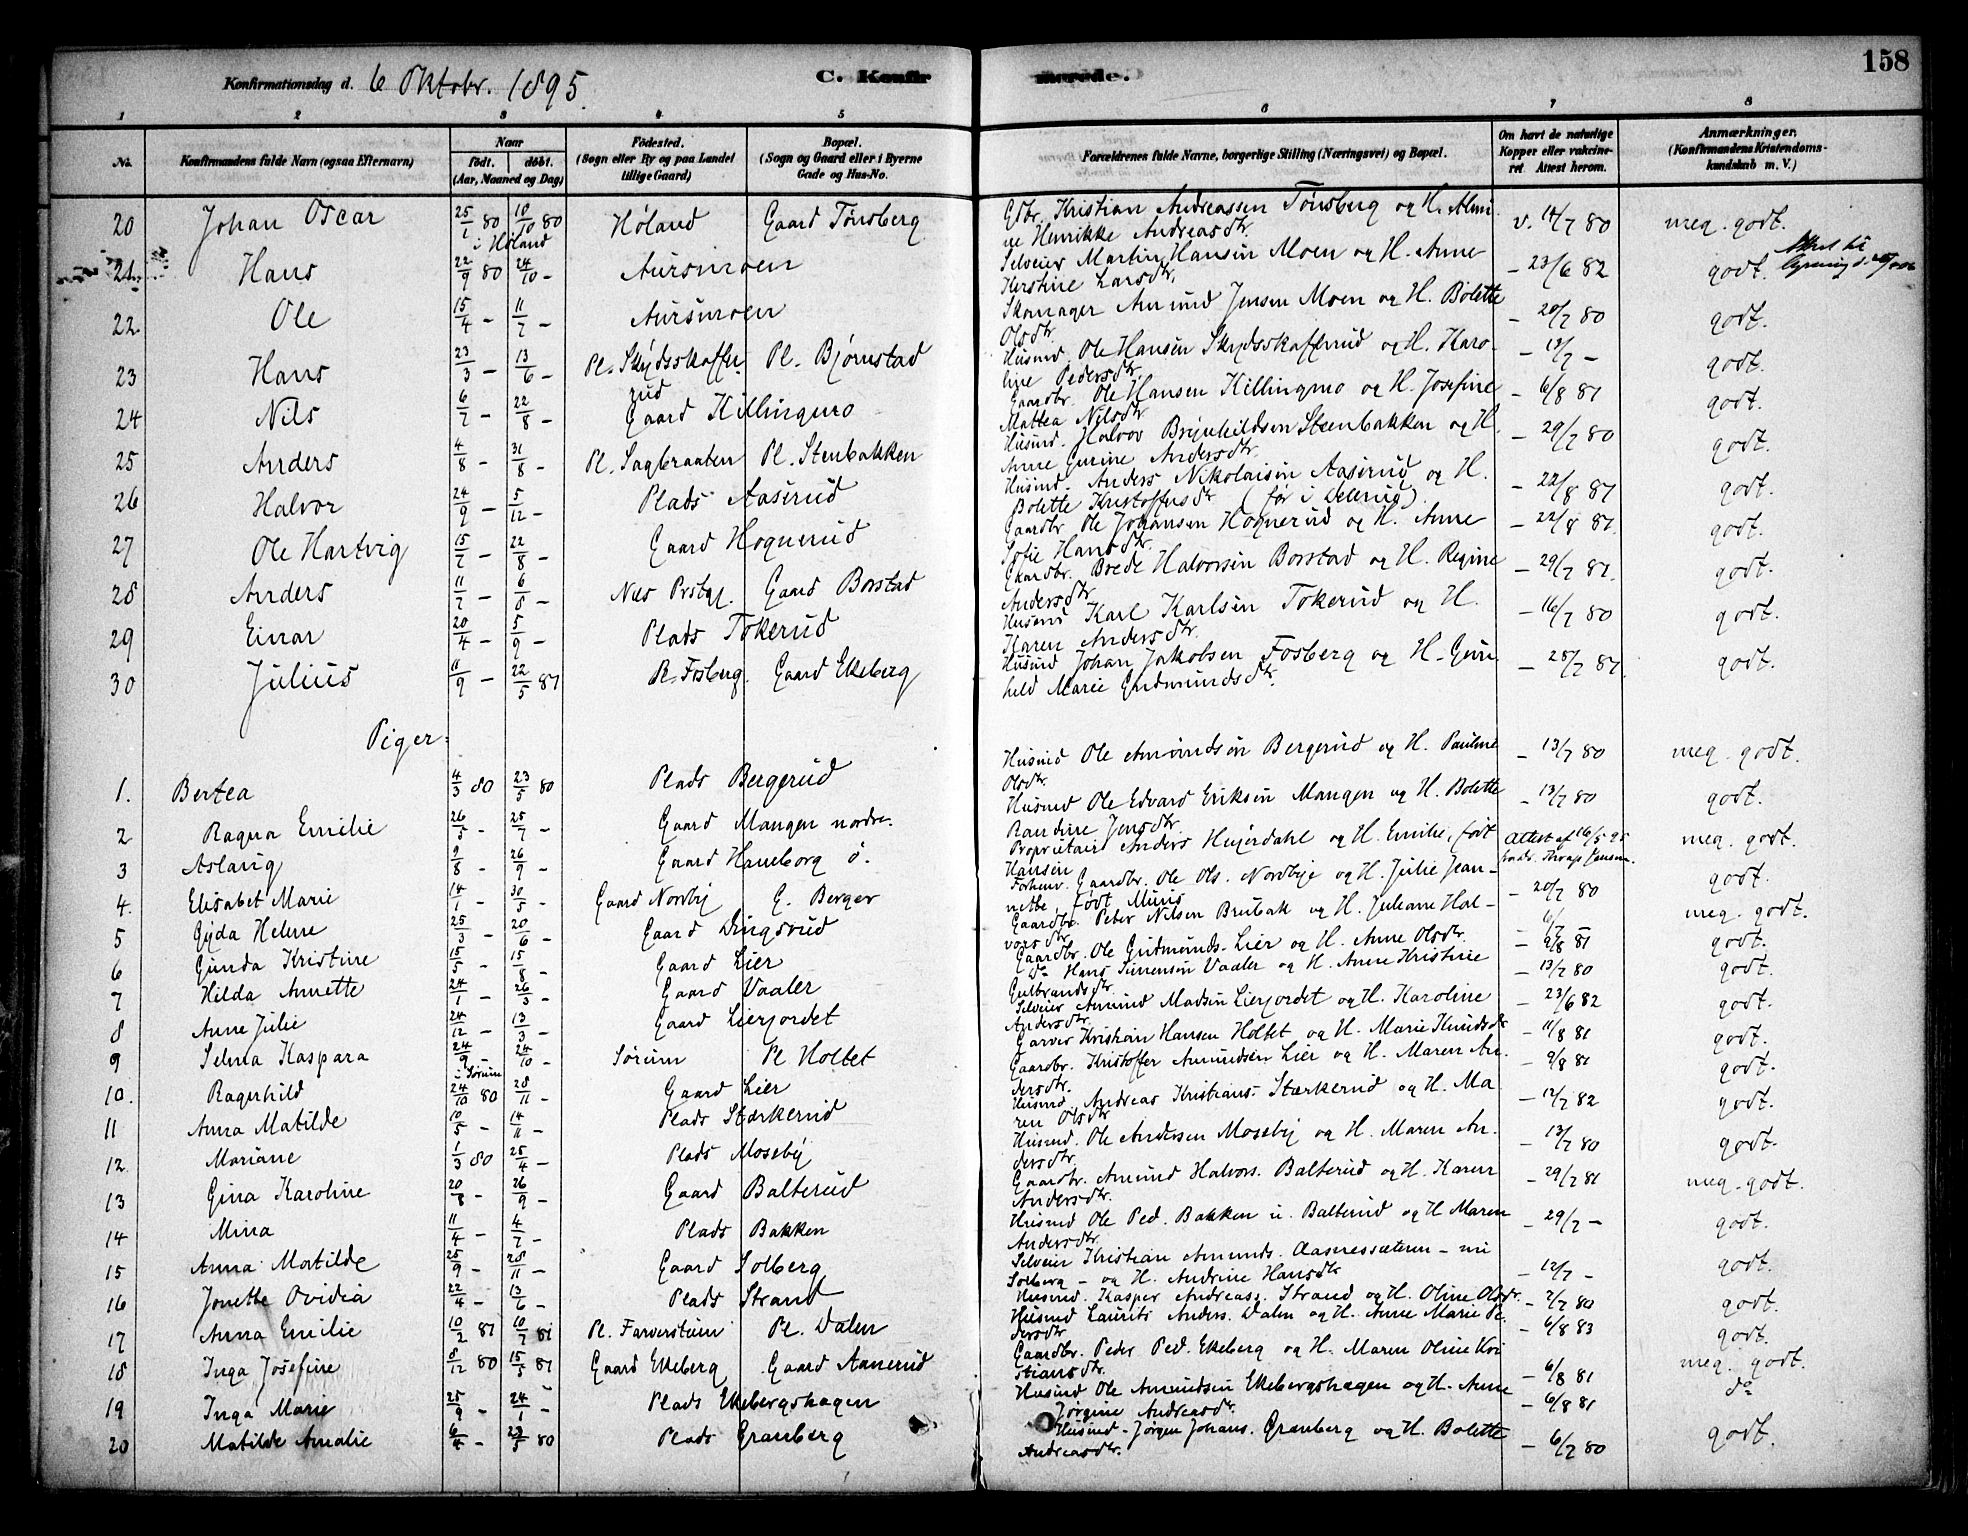 158
Konfirmationsdag d. 6 Oktobr. 1895.
C. Konfir merede.
1 2 3 4 5 6 7 8
No. Konfirmandens fulde Navn (ogsaa Efternavn) Naar født. døbt. (Aar, Maaned og Dag) Fødested. (Sogn eller By og paa Landet tillige Gaard) Bopæl. (Sogn og Gaard eller i Byerne Gade og Hus-No. Forældrenes fulde Navne, borgerlige Stilling (Næringsvei) og Bopæl. Om havt de naturlige Kopper eller vaccineret Attest herom. Anmærkninger. (Konfirmandens Kristendomskundskab m. V.)
20 Johan Oscar 25/1 80 10/10 80 i Høland Høland Gaard Tønsberg Gdbr. Kristian Andreassen Tønsberg og H. Almine Henrikke Andreasdtr. v. 14/7 80 meg. godt.
21 Hans 22/9 80 24/10 – Aursmoen Selveier Martin Hansen Moen og H. Anne Kerstine Larsdtr. – 23/6 82 godt.
22 Ole 15/4 – 11/7 – Aursmoen Skomager Amund Jensen Moen og H. Bolette Olsdtr. – 20/7 80 godt.
23 Hans 23/3 – 13/6 – Pl. Skydsskafferrud Pl. Bjørnstad Husmd. Ole Hansen Skydsskafferrud og H. Karoline Pedersdtr. – 13/7 – godt.
24 Nils 6/7 – 22/8 – Gaard Killingmo Gaardbr. Ole Hansen Killingmo og H. Josefine Mattea Nilsdtr. – 6/8 81 godt.
25 Anders 4/8 – 31/8 – Pl. Sagbraaten Pl. Stenbakken Husmd. Halvor Brynhildsen Steenbakken og H. Anne Gurine Andersdtr. – 29/7 80 godt.
26 Halvor 24/9 – 5/12 – Plads Aaserud Husmd. Anders Nikolaisen Aaserud og H. Bolette Kristoffersdtr (før i ). – 22/8 81 godt.
27 Ole Hartvig 15/7 – 22/8 – Gaard Hognerud Gaardbr. Ole Johansen Hognerud og H. Anne Sofie Hansdtr. – 22/8 81. godt.
28 Anders 11/7 – 6/8 – Nes Prstgj. Gaard Borstad Gaardbr. Brede Halvorsen Borstad og H. Regine Andersdtr. – 29/7 81. godt.
29 Einar 20/4 – 5/9 – Plads Tokerud Husmd Karl Karlsen Tokerud og H. Karen Andersdtr. – 16/7 80 godt.
30 Julius 11/9 – 22/5 81 Pl. Fosberg. Gaard Ekeberg Husmd Johan Jakobsen Fosberg og H. Gunhild Marie Gudmundsdtr. – 28/7 81. godt.
Piger:
1. Bertea 4/3 80 23/5 80 Plads Bergerud Husmd Ole Amundsen Bergerud og H. Pauline Olsdtr. – 13/7 80 meg. godt.
2 Ragna Emilie 26/5 – 25/7 – Gaard Mangen nordre. Husmd Ole Edvard Eriksen Mangen og H. Bolette Randine Jensdtr. – 13/7 80 godt.
3 Aslaug 9/8 – 26/9 – Gaard Haneborg ø. Proprietair Anders Heyerdahl og H. Emilie, født Hansen Attest af 16/5 95 meg. godt.
4. Elisabet Marie 14/1 – 30/5 – Gaard Nordby G. Berger Forhenv. Gaardbr. Ole Ols. Nordbye og H. Julie Jeannette, født – 20/7 80 godt.
5 Gyda Helene 25/3 – 20/6 – Gaard Dingsrud Gaardbr. Peter Nilsen Breebak og H. Juliane Halvorsdtr. – 6/7 – meg. godt.
6 Gunda Kristine 15/5 – 15/8 – Gaard Lier Gaardbr. Ole Gudmunds. Lier og H. Anne Olsdtr. – 9/8 81 godt.
7 Hilda Annette 24/1 – 26/3 – Gaard Vaaler do Hans Simensen Vaaler og H. Anne Kristine Gulbrandsdtr. – 13/7 80 godt.
8 Anne Julie 24/12 – 13/3 – Gaard Lierjordet Selveier Amund Madsen Lierjordet og H. Karoline Andersdtr. – 23/6 82 godt.
9 Selma Kaspara 24/9 – 24/10 – i Sørum Sørum Pl Holtet Garver Kristian Hansen Holtet og H. Marie Knudsdtr – 11/8 81 godt.
10. Ragnhild 24/10 80 28/11 – Gaard Lier Gaardbr. Kristoffer Amundsen Lier og H. Maren Andersdtr. – 9/8 81 godt.
11 Anna Matilde 10/5 – 14/11 – Plads Stærkerud Husmd. Andreas Kristians. Stærkerud og H. Maren Olsdtr – 12/7 82 godt.
12. Mariane 1/3 80 25/4 – Plads Moseby Husmd. Ole Andersen Moseby og H. Maren Andersdtr. – 13/7 80 godt.
13 Gina Karoline 20/8 – 26/9 – Gaard Balterud Gaardbr. Amund Halvors. Balterud og H. Karen Andersdtr. – 29/7 81 meg. godt.
14 Mina 11/4 – 4/7 – Plads Bakken Husmd Ole Ped. Bakken u. Balterud og H Maren Andersdtr. – 29/7 – godt.
15 Anna Matilde 25/9 – 28/11 – Gaard Solberg Selveier Kristian Amunds. Aaseressæteren – nu Solberg – og H. Andrine Hansdtr – 12/7 – godt.
16 Jonette Ovidia 22/4 – 13/6 – Plads Strand Husmd. Kasper Andreass. Strand og H. Oline Olsdtr. – 2/7 80 godt.
17 Anna Emilie 10/2 81 10/7 81 Pl. Farverstuen Pl. Dalen Husmd Laurits Anders. Dalen og H. Anne Marie Pedersdtr. – 6/8 83 godt.
18 Inga Josefine 8/12 80 15/5 81 Gaard Ekeberg Gaard Aanerud Gaardbr. Peder Ped. Ekeberg og H. Maren Oline Kristiansdtr. – 6/8 81 meg. godt.
19 Inga Marie 25/9 – 24/1 – Plads Ekebergshagen Husmd Ole Amundsen Ekebergshagen og H. Anne Jørgine Andreasdtr. – 6/8 81 do
20 Matilde Amalie 6/4 – 23/5 80 Plads Granberg Husmd. Jørgen Johans. Granberg og H. Bolette Andreasdtr. – 6/7 80 godt.